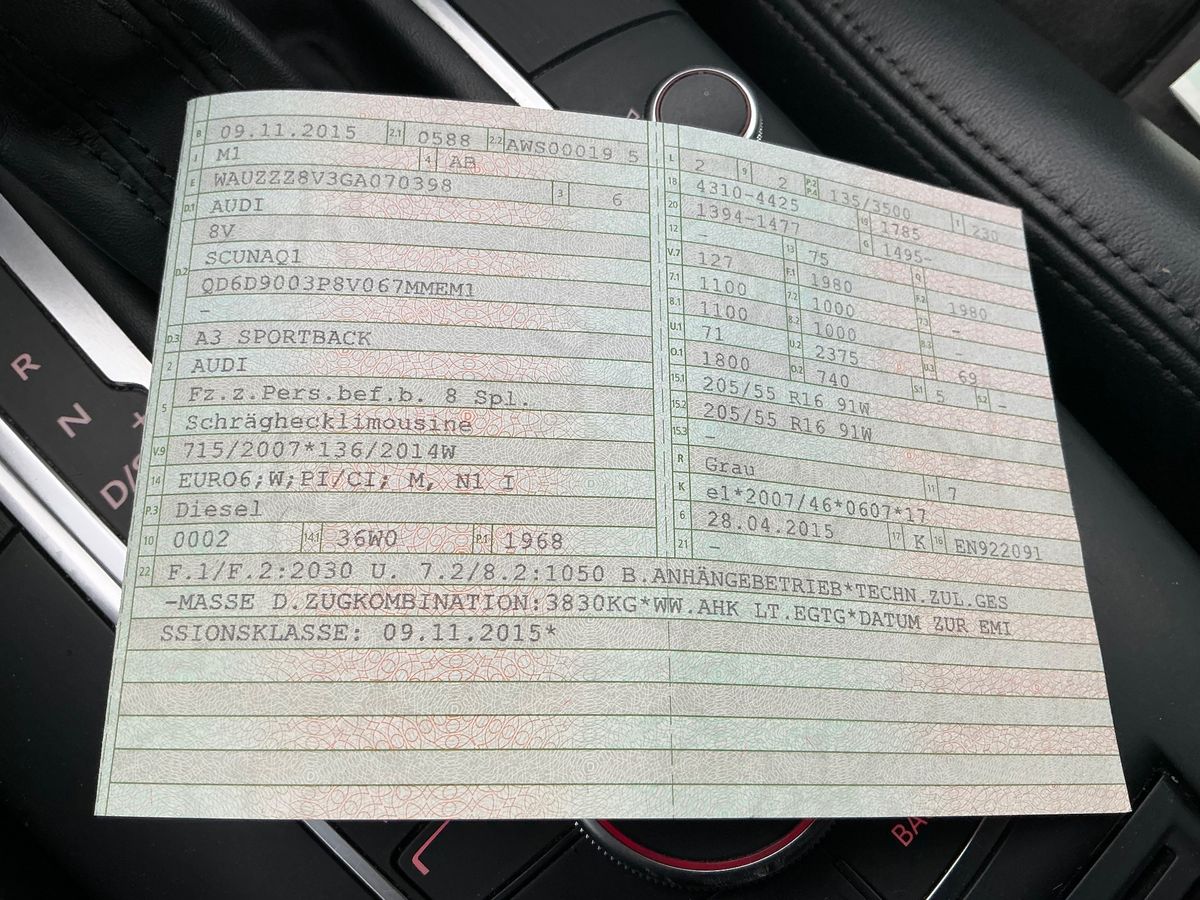 B 09.11.2015 2.1 0588 2.2 AWS00019 5
J M1 4 AB
E WAUZZZ8V3GA070398 3 6
D.1 AUDI
8V
D.2 SCUNAQ1
QD6D9003P8V067MMEM1
–
D.3 A3 SPORTBACK
2 AUDI
5 Fz.z.Pers.bef.b. 8 Spl.
Schräghecklimousine
V.9 715/2007*136/2014W
14 EURO6;W;PI/CI; M, N1 I
P.3 Diesel
10 0002 14.1 36W0 P.1 1968
L 2 9 2 P.2 P.4 135/3500 T 230
18 4310-4425 19 1785
20 1394-1477 G 1495-
12 – 13 75 Q
V.7 127 F.1 1980 F.2 1980
7.1 1100 7.2 1000 7.3 –
8.1 1100 8.2 1000 8.3 –
U.1 71 U.2 2375 U.3 69
O.1 1800 O.2 740 S.1 5 S.2 –
15.1 205/55 R16 91W
15.2 205/55 R16 91W
15.3 –
R Grau 11 7
K e1*2007/46*0607*17
6 28.04.2015 17 K 16 EN922091
21 –
22 F.1/F.2:2030 U. 7.2/8.2:1050 B.ANHÄNGEBETRIEB*TECHN.ZUL.GES
-MASSE D.ZUGKOMBINATION:3830KG*WW.AHK LT.EGTG*DATUM ZUR EMI
SSIONSKLASSE: 09.11.2015*
R
N
D/S
+
BA